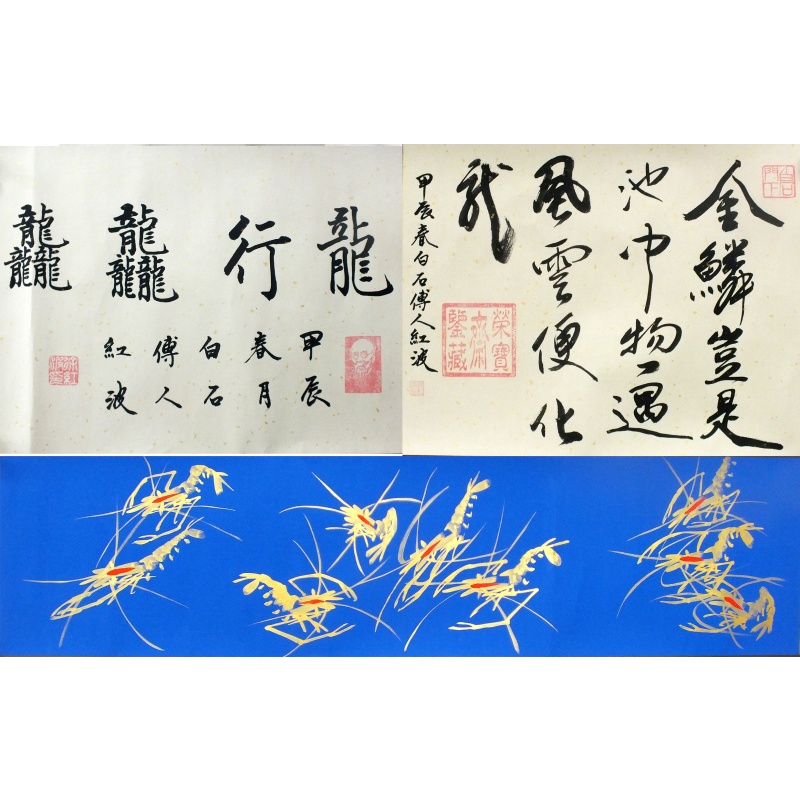 龍行龘龘
甲辰
春月
白石
傅人
紅波
白石門下
金鱗豈是
池中物一遇
風雲便化
龙
甲辰春白石傅人紅波
榮寶
齋
鑒藏